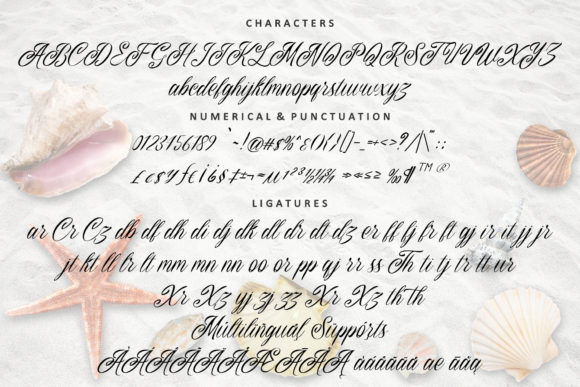 CHARACTERS
ABCDEFGHIJKLMNOPQRSTUVWXYZ
abcdefghijklmnopqrstuvwxyz
NUMERICAL & PUNCTUATION
0123456789 `~!@#$%^&*(){}[]-_=+<>?/|\"::
LIGATURES
ar Cr Cz db df dh di dj dk dl dr dt dz er ff fj fr ft gj ir it jj jr
jt kt ll lr lt mm mn nn oo or pp rr ss Th ti tj tr tt ur
Xr Xz yj zj zz Xr Xz th th
Multilingual Supports